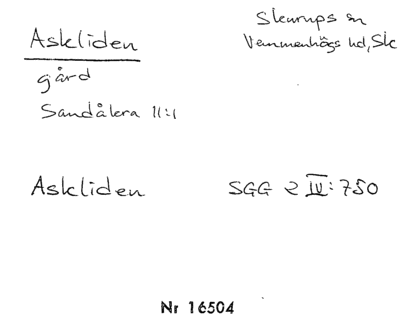 Skurups sn
Askliden
Vemmenhögs hd, Sk
gård
Sandåkra 11:1
Askliden
SGG 2 IV: 750
Nr 16504